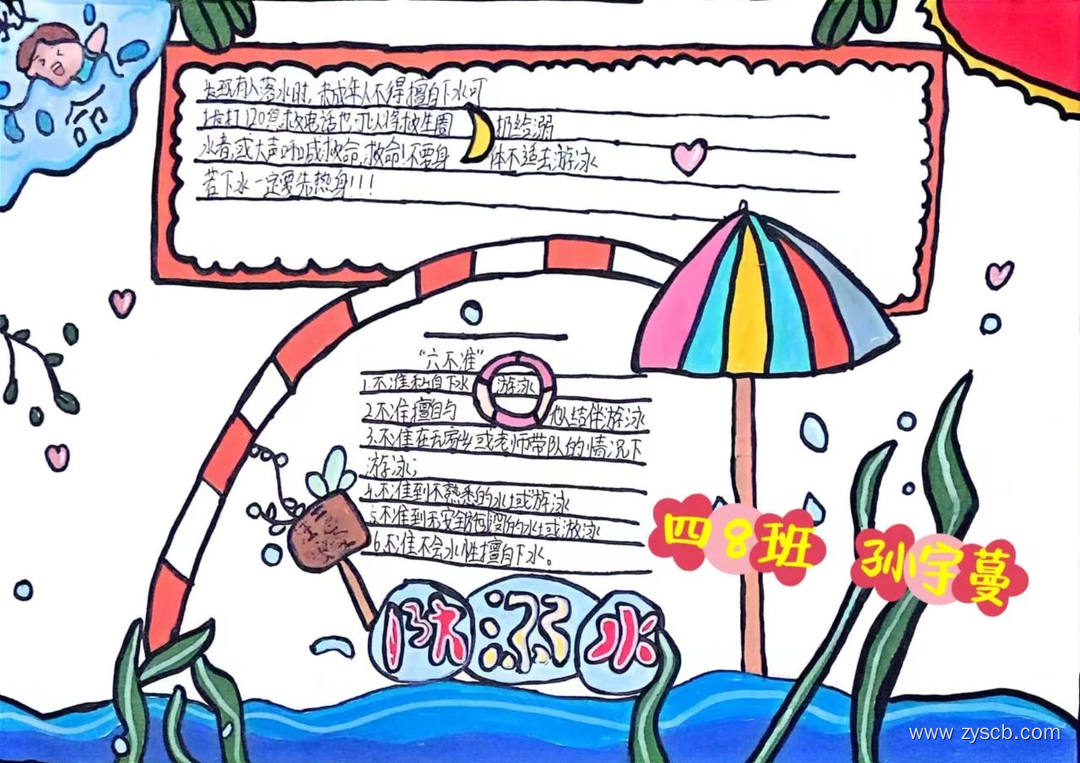 救命
发现有人落水时,未成年人不得擅自下水可
拨打120急救电话也可以将救生圈 扔给溺
水者,或大声呐喊救命,救命!不要身 体不适去游泳
若下水一定要先热身!!!
“六不准”
1.不准私自下水 游泳
2.不准擅自与 他人结伴游泳
3.不准在无家长或老师带队的情况下
游泳;
4.不准到不熟悉的水域游泳
5.不准到无安全设施的水域游泳
6.不准不会水性擅自下水。
防溺水
四8班
孙宇蔓
www.zyscb.com